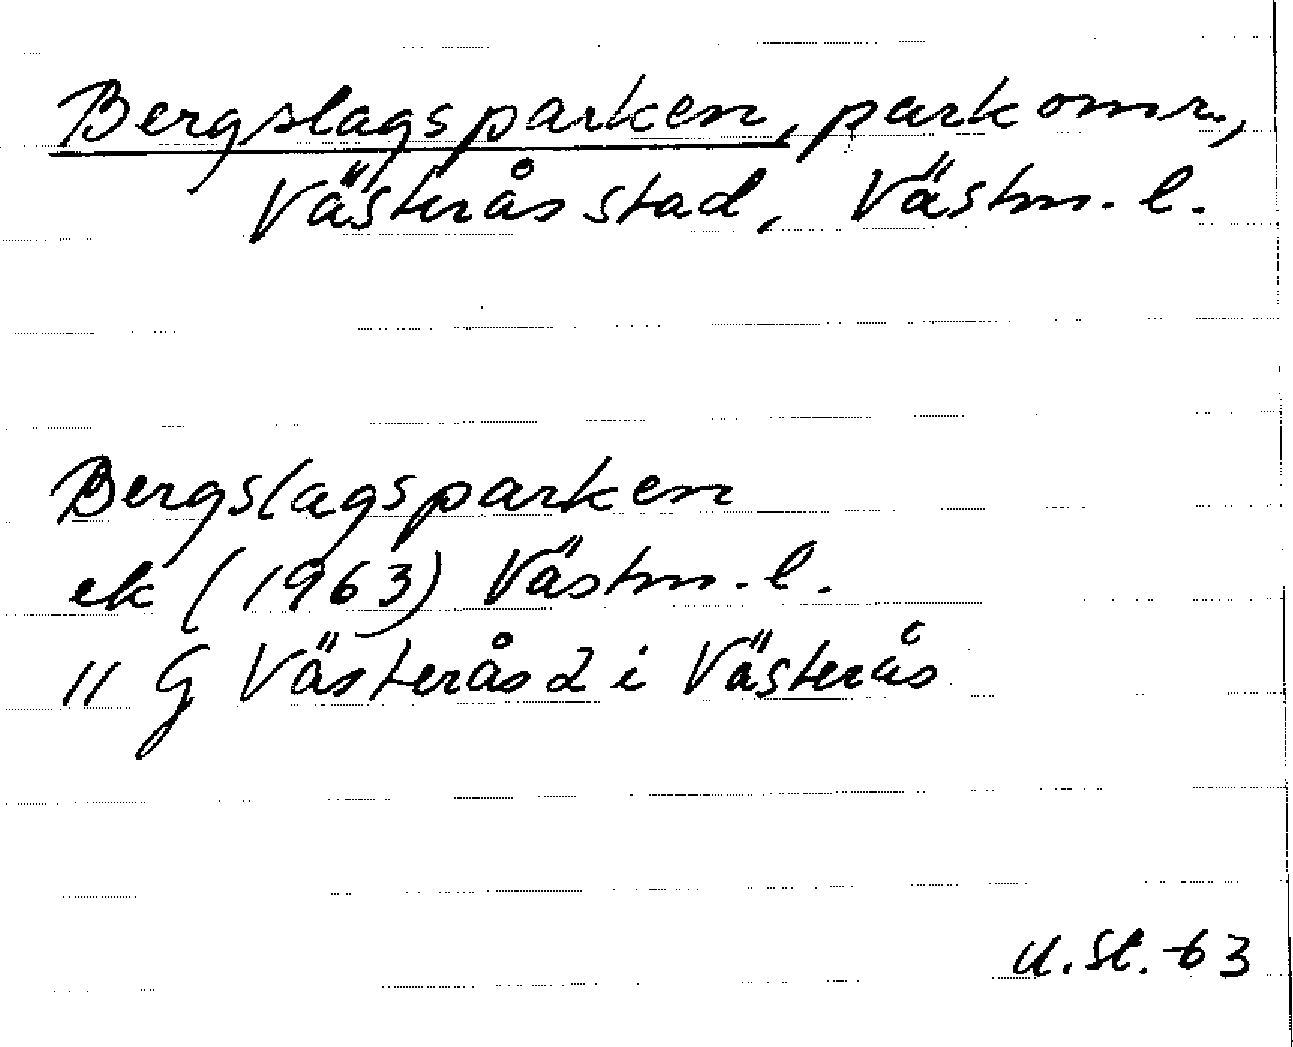 Bergslagsparken, parkomr.,
Västerås stad, Västm. l.
Bergslagsparken
ek (1963) Västm. l.
11 G Västerås 2 i Västerås
U. St. -63